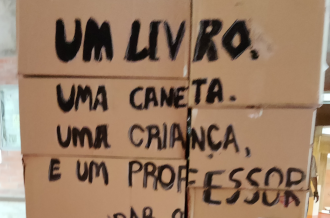 UM LIVRO,
UMA CANETA.
UMA CRIANÇA,
E UM PROFESSOR